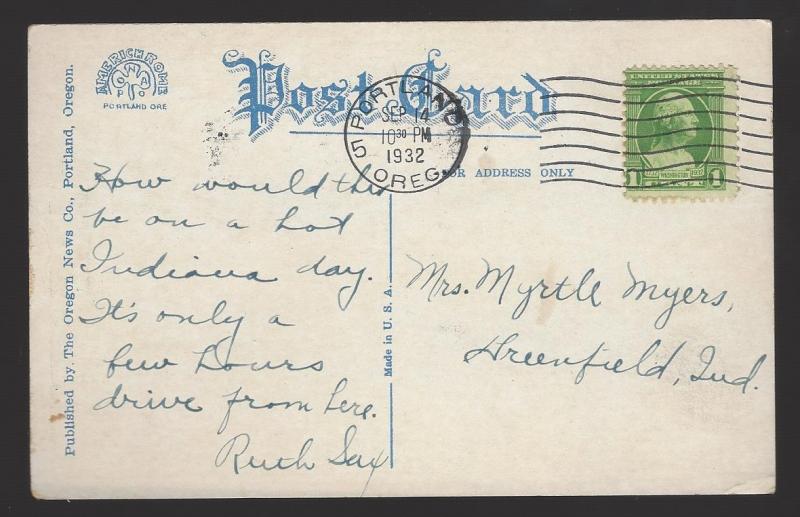 AMERICHROME
PORTLAND ORE
Post Card
PORTLAND
SEP 14
10 30 PM
1932
5 OREG.
UNITED STATES
1 1732 WASHINGTON 1932 1
FOR ADDRESS ONLY
Published by The Oregon News Co., Portland, Oregon.
How would this
be on a hot
Indiana day.
It's only a
few hours
drive from here.
Ruth Sax
Made in U. S. A.
Mrs. Myrtle Myers,
Greenfield, Ind.